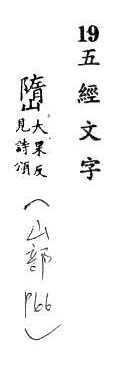 19 五經文字
嶞大果反
見詩頌
(山部 P66)